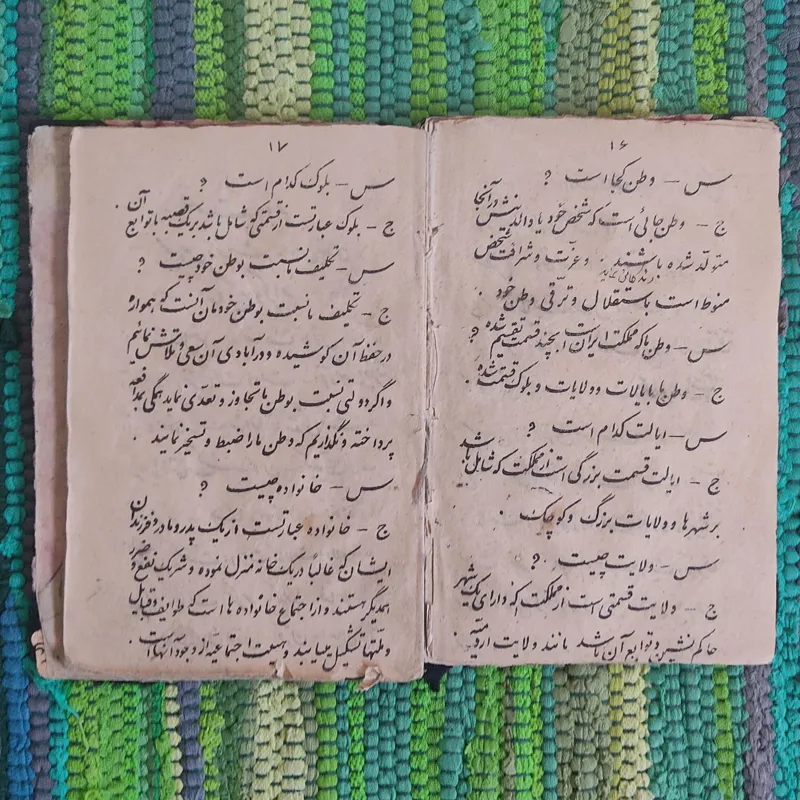 ۱۶
س – وطن کجا است ؟
ج – وطن جائی است که شخص خود یا والدینش در آنجا
متولد شده باشند و زندگانی نماید . و عزّت و شرافت شخص
منوط است باستقلال و ترقّی وطن خود .
س – وطن ما که مملکت ایران است بچند قسمت تقسیم شده ؟
ج – وطن ما بایالات و ولایات و بلوک قسمت شده .
س – ایالت کدام است ؟
ج – ایالت قسمت بزرگی است از مملکت که شامل باشد
بر شهرها و ولایات بزرگ و کوچک .
س – ولایت چیست ؟
ج – ولایت قسمتی است از مملکت که دارای یک شهر
حاکم نشین و توابع آن باشد مانند ولایت ارومیه .
۱۷
س – بلوک کدام است ؟
ج – بلوک عبارتست از قسمتی که شامل باشد بر یک قصبه با توابع آن .
س – تکلیف ما نسبت بوطن خود چیست ؟
ج – تکلیف ما نسبت بوطن خودمان آنست که همواره
در حفظ آن کوشیده و در آبادی آن سعی و تلاش نمائیم
و اگر دولتی نسبت بوطن ما تجاوز و تعدّی نماید همگی بمدافعه
پرداخته و نگذاریم که وطن ما را ضبط و تسخیر نمایند .
س – خانواده چیست ؟
ج – خانواده عبارتست از یک پدر و مادر و فرزندان
ایشان که غالباً در یک خانه منزل نموده و شریک نفع و ضرر
همدیگر هستند و از اجتماع خانواده ها است که طوایف و قبایل
و ملّتها تشکیل مییابند و هیئت اجتماعیه از وجود آنها است .